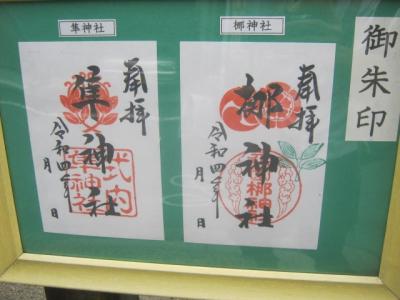 御朱印
梛神社
奉拝
梛神社
令和四年 月 日
隼神社
奉拝
隼神社
令和四年 月 日
式内
隼神社